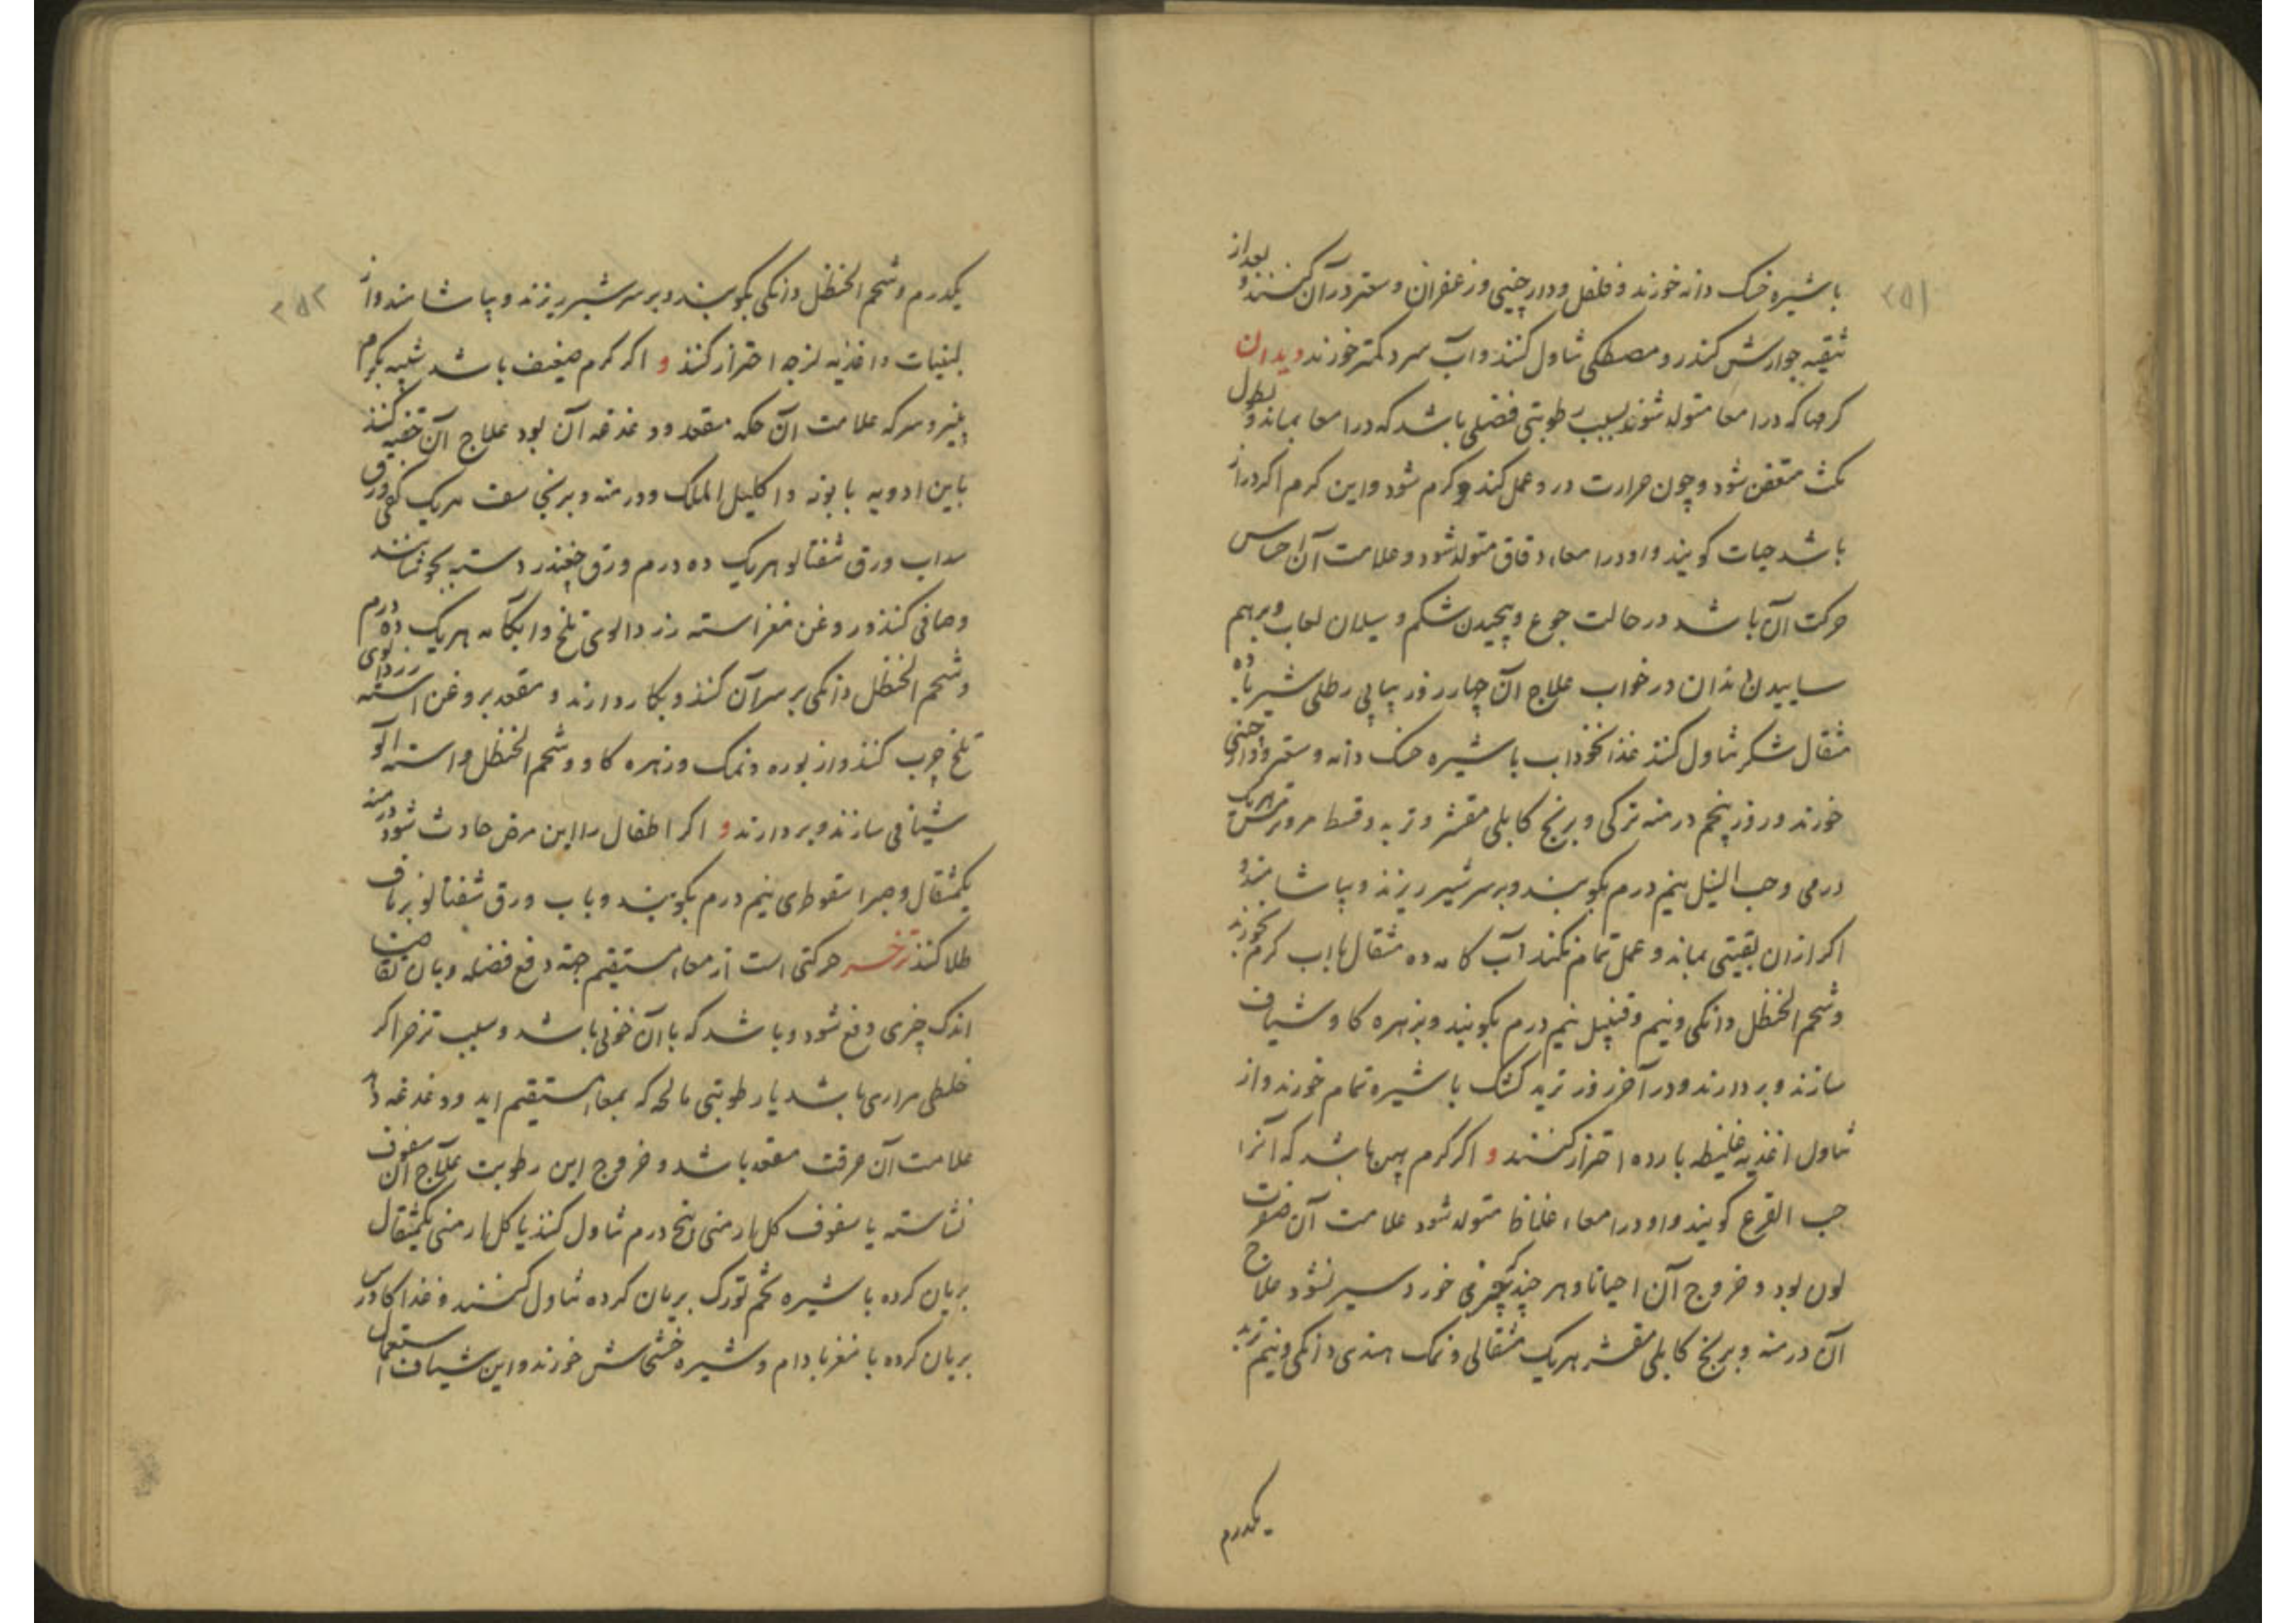 ۲۵۱
با شیره خسک دانه خورند و فلفل و دارچینی و زعفران و سعتر در آن کنند و بعد از
تنقیه جوارش کندر و مصطکی تناول کنند و آب سرد کمتر خورند دیدان
کرمها که در امعا متولد شوند بسبب رطوبتی فضلی باشد که در امعا بماند و بطول
مکث متعفن شود و چون حرارت درو عمل کند کرم شود و این کرم اکر دراز
باشد حیات کویند و او در امعاء دقاق متولد شود و علامت آن احساس
حرکت آن باشد در حالت جوع و پیچیدن شکم و سیلان لعاب و برهم
ساییدن دندان در خواب علاج آن چهار روز پیاپی رطلی شیر با ده
مثقال شکر تناول کنند غذا نخوداب با شیره خسک دانه و سعتر و دارچینی
خورند و روز پنجم درمنه ترکی و برنج کابلی مقشر و تربد و قسط مر و ترمس هریک
درمی و حب النیل نیم درم بکوبند و بر سر شیر ریزند و بیاشامند و
اکر ازان بقیتی بماند و عمل تمام نکند آب کامه ده مثقال با اب کرم بخورند
و شحم الحنظل دانکی و نیم و قنبیل نیم درم بکوبند و بزهره کاو شیاف
سازند و بردارند و در آخر روز ترید کشک با شیره تمام خورند و از
تناول اغذیه غلیظه بارده احتراز کنند و اکر کرم پهن باشد که آنرا
حب القرع کویند و او در امعاء غلاظ متولد شود علامت آن صفرت
لون بود و خروج آن احیانا و هر چند که چیزی خورد سیر نشود علاج
آن درمنه و برنج کابلی مقشر هریک مثقالی و نمک هندی دانکی و نیم تربد
یکدرم
۲۵۲
یکدرم و شحم الحنظل دانکی بکوبند و بر سر شیر ریزند و بیاشامند و از
لبنیات و اغذیه لزجه احتراز کنند و اکر کرم ضعیف باشد شبیه بکرم
پنیر و سرکه علامت آن حکه مقعد و دغدغه آن بود علاج آن حقنه کنند
باین ادویه بابونه و اکلیل الملک و درمنه و برنجاسف هریک کفی ورق
سداب ورق شفتالو هریک ده درم ورق چغندر دسته بجوشانند
و صافی کنند و روغن مغز استه زردالوی تلخ و آبکامه هریک ده درم
و شحم الحنظل دانکی بر سر آن کنند و بکار دارند و مقعد بروغن استه زردالوی
تلخ چرب کنند و از بوره و نمک و زهره کاو و شحم الحنظل و استه الو
شیافی سازند و بردارند و اکر اطفال را این مرض حادث شود درمنه
یکمثقال و صبر اسقوطری نیم درم بکوبند و باب ورق شفتالو بر ناف
طلا کنند تزحر حرکتی است از معاء مستقیم جهة دفع فضله و بان
اندک چیزی دفع شود و باشد که با آن خونی باشد و سبب تزحر اکر
خلطی مراری باشد یا رطوبتی مالحه که بمعاء مستقیم اید و دغدغه
علامت آن حرقت مقعد باشد و خروج این رطوبت علاج آن سفوف
نشاسته یا سفوف کل ارمنی پنج درم تناول کنند یا کل ارمنی یکمثقال
بریان کرده با شیره تخم تورک بریان کرده تناول کنند و غذا کاورس
بریان کرده با مغز بادام و شیره خشخاش خورند و این شیاف استعمال